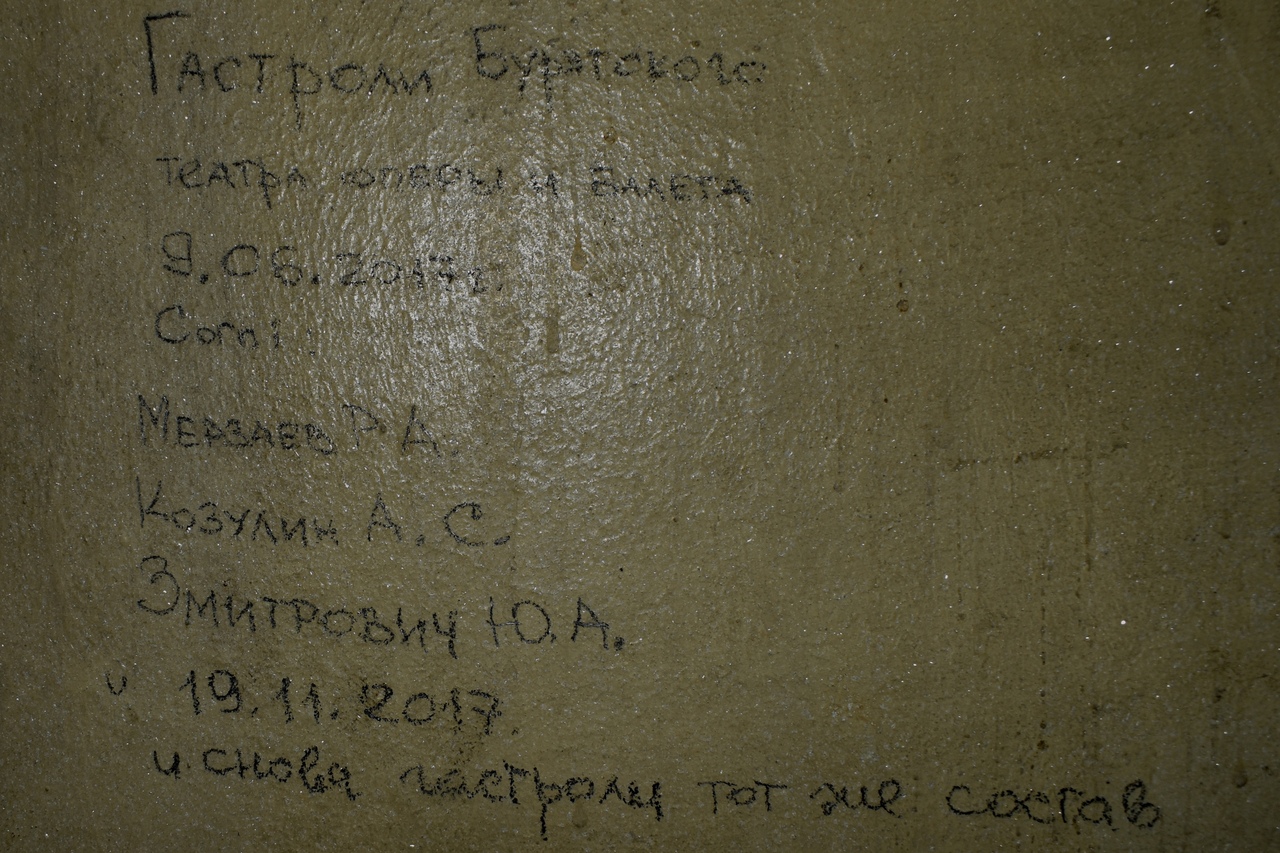 Гастроли Бурятского
театра оперы и балета
9.06.2017г.
Corni:
Р. А.
Козулин А. С.
Змитрович Ю. А.
и 19.11.2017.
и снова гастроли тот же состав